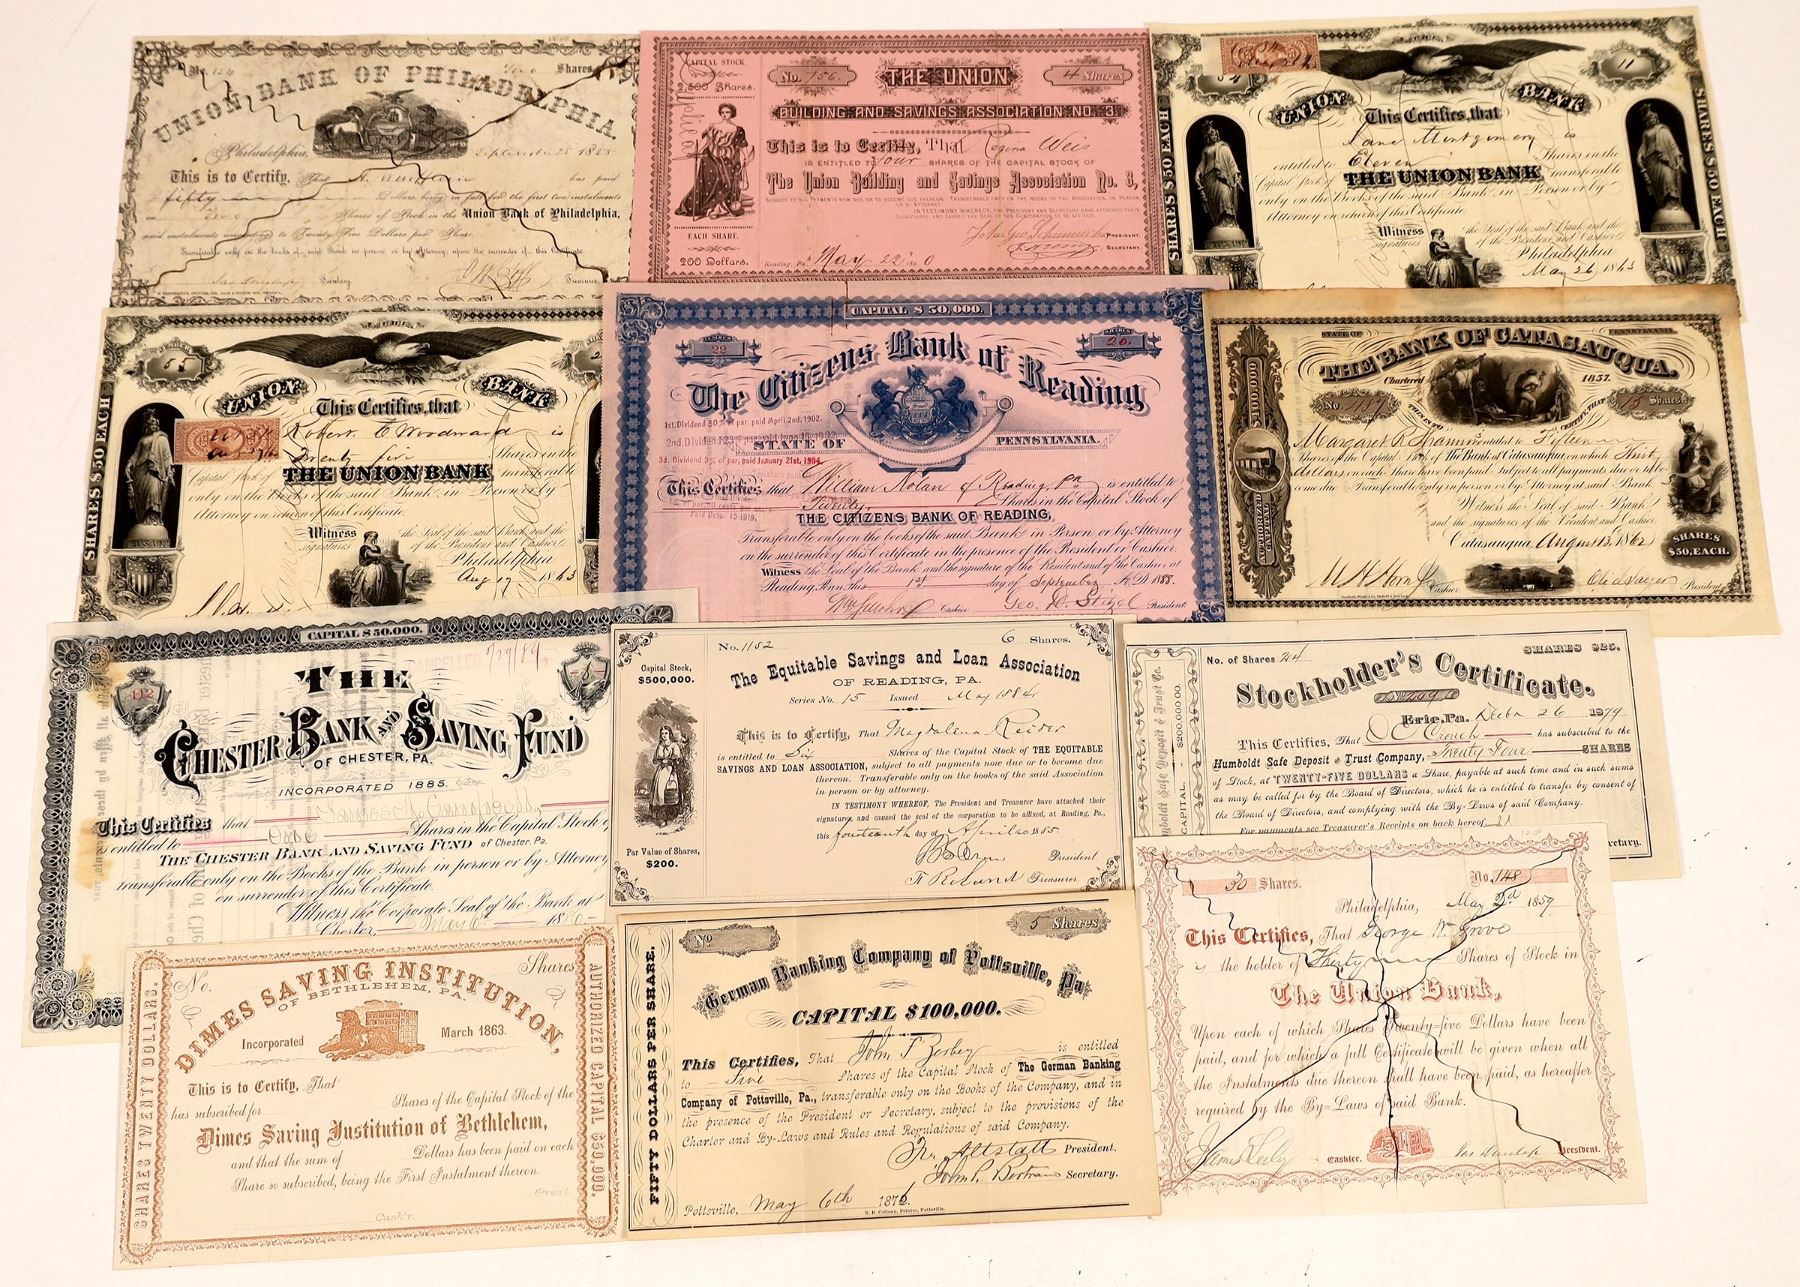 No. 124
Shares
UNION BANK OF PHILADELPHIA
Philadelphia, September 25 1858
This is to Certify, That
has paid
fifty
Dollars, being in full for the first two instalments
on
Shares of Stock in the Union Bank of Philadelphia,
said instalments amounting to Twenty Five Dollars per Share.
Transferable only on the books of said Bank in person, or by Attorney, upon the surrender of this Certificate
Treasurer
CAPITAL STOCK
2,500 Shares.
EACH SHARE.
200 Dollars.
No. 756.
THE UNION
4 Shares
BUILDING AND SAVINGS ASSOCIATION NO. 3
This is to Certify, That Regina Weis
IS ENTITLED TO Four SHARES OF THE CAPITAL STOCK OF
The Union Building and Savings Association No. 3,
PRESIDENT.
SECRETARY.
Reading, Pa. May 22 1880
SHARES $50 EACH
54
11
UNION BANK
This Certifies, that
Jane Montgomery is
entitled to Eleven Shares in the
Capital Stock of THE UNION BANK transferable
only on the Books of the said Bank, in Person or by
Attorney on return of this Certificate.
Witness the Seal of the said Bank and the
signatures of the President and Cashier
Philadelphia
May 26 1863
SHARES $50 EACH
SHARES $50 EACH
UNION BANK
This Certifies, that
Robert E Woodward is
Twenty five Shares in the
Capital Stock of THE UNION BANK transferable
only on the Books of the said Bank, in Person or by
Attorney on return of this Certificate.
Witness the Seal of the said Bank and the
signatures of the President and Cashier
Philadelphia
Aug 17 1863
CAPITAL $50,000.
NUMBER 22
SHARES 20.
The Citizens Bank of Reading
1st. Dividend 50% of par. paid April 2nd, 1902.
3d. Dividend 5% of par, paid January 21st, 1904
STATE OF PENNSYLVANIA.
This Certifies that William Nolan of Reading Pa is entitled to
Twenty Shares in the Capital Stock of
THE CITIZENS BANK OF READING,
Transferable only on the books of the said Bank in Person or by Attorney
on the surrender of this Certificate in the presence of the President or Cashier.
Witness the Seal of the Bank and the signature of the President and of the Cashier, at
Reading, Penn. this 1st day of September A.D. 1888.
Cashier Geo. D. Stitzel President
STATE OF PENNSYLVANIA.
THE BANK OF CATASAUQUA.
Chartered 1857.
AUTHORIZED CAPITAL $400,000
No.
15 Shares
THIS IS TO CERTIFY, THAT
Margaret A. is entitled to Fifteen
Shares of the Capital Stock of The Bank of Catasauqua, on which Thirty
dollars on each Share have been paid. Subject to all payments due or to be-
come due. Transferable only in person or by Attorney at said Bank
Witness the Seal of said Bank
and the signatures of the President and Cashier.
Catasauqua, August 13, 1862
SHARES $50, EACH.
M H Horn Jr Cashier
President
CAPITAL $50,000.
112
CANCELLED 7/19/89
THE
CHESTER BANK AND SAVING FUND
OF CHESTER, PA.
INCORPORATED 1885.
This Certifies that James A. Campbell
entitled to One Shares in the Capital Stock of
THE CHESTER BANK AND SAVING FUND of Chester, Pa.
transferable only on the Books of the Bank in person or by Attorney
on surrender of this Certificate.
Witness the Corporate Seal of the Bank at
Chester, May 6 1886
Capital Stock,
$500,000.
Par Value of Shares,
$200.
No. 1152
6 Shares.
The Equitable Savings and Loan Association
OF READING, PA.
Series No. 15 Issued May 1884
This is to Certify, That Magdalena Reider
is entitled to Six Shares of the Capital Stock of THE EQUITABLE
SAVINGS AND LOAN ASSOCIATION, subject to all payments now due or to become due
thereon. Transferable only on the books of the said Association
in person or by attorney.
IN TESTIMONY WHEREOF, The President and Treasurer have attached their
signatures, and caused the seal of the corporation to be affixed, at Reading, Pa.,
this fourteenth day of April 1885
President
Treasurer.
No. of Shares 24
SHARES $25.
Stockholder's Certificate.
Erie, Pa. Decbr 26 1879
This Certifies, That Crouch has subscribed to the
Humboldt Safe Deposit & Trust Company, Twenty Four SHARES
of Stock, at TWENTY-FIVE DOLLARS a Share, payable at such time and in such sums
as may be called for by the Board of Directors, which he is entitled to transfer by consent of
the Board of Directors, and complying with the By-Laws of said Company.
For payments see Treasurer's Receipts on back hereof
Humboldt Safe Deposit & Trust Co.
CAPITAL, $200,000 00
SHARES TWENTY DOLLARS.
No.
Shares
DIMES SAVING INSTITUTION,
OF BETHLEHEM, PA.
Incorporated March 1863.
This is to Certify, That
has subscribed for Shares of the Capital Stock of the
Dimes Saving Institution of Bethlehem,
and that the sum of Dollars has been paid on each
Share so subscribed, being the First Instalment thereon.
Pres't.
Cash'r.
AUTHORIZED CAPITAL $50,000.
FIFTY DOLLARS PER SHARE.
No
5 Shares
German Banking Company of Pottsville, Pa
CAPITAL $100,000.
This Certifies, That John F Zerbey is entitled
to Five Shares of the Capital Stock of The German Banking
Company of Pottsville, Pa., transferable only on the Books of the Company, and in
the presence of the President or Secretary, subject to the provisions of the
Charter and By-Laws and Rules and Regulations of said Company.
Altstatt President.
John P. Bertram Secretary.
Pottsville, May 6th 187
30 Shares.
No. 148
Philadelphia, May 2d 1859
This Certifies, That George W Grove
the holder of Thirty Shares of Stock in
The Union Bank,
Upon each of which Shares Twenty-five Dollars have been
paid, and for which a full Certificate will be given when all
the Instalments due thereon shall have been paid, as hereafter
required by the By-Laws of said Bank.
Cashier.
President.